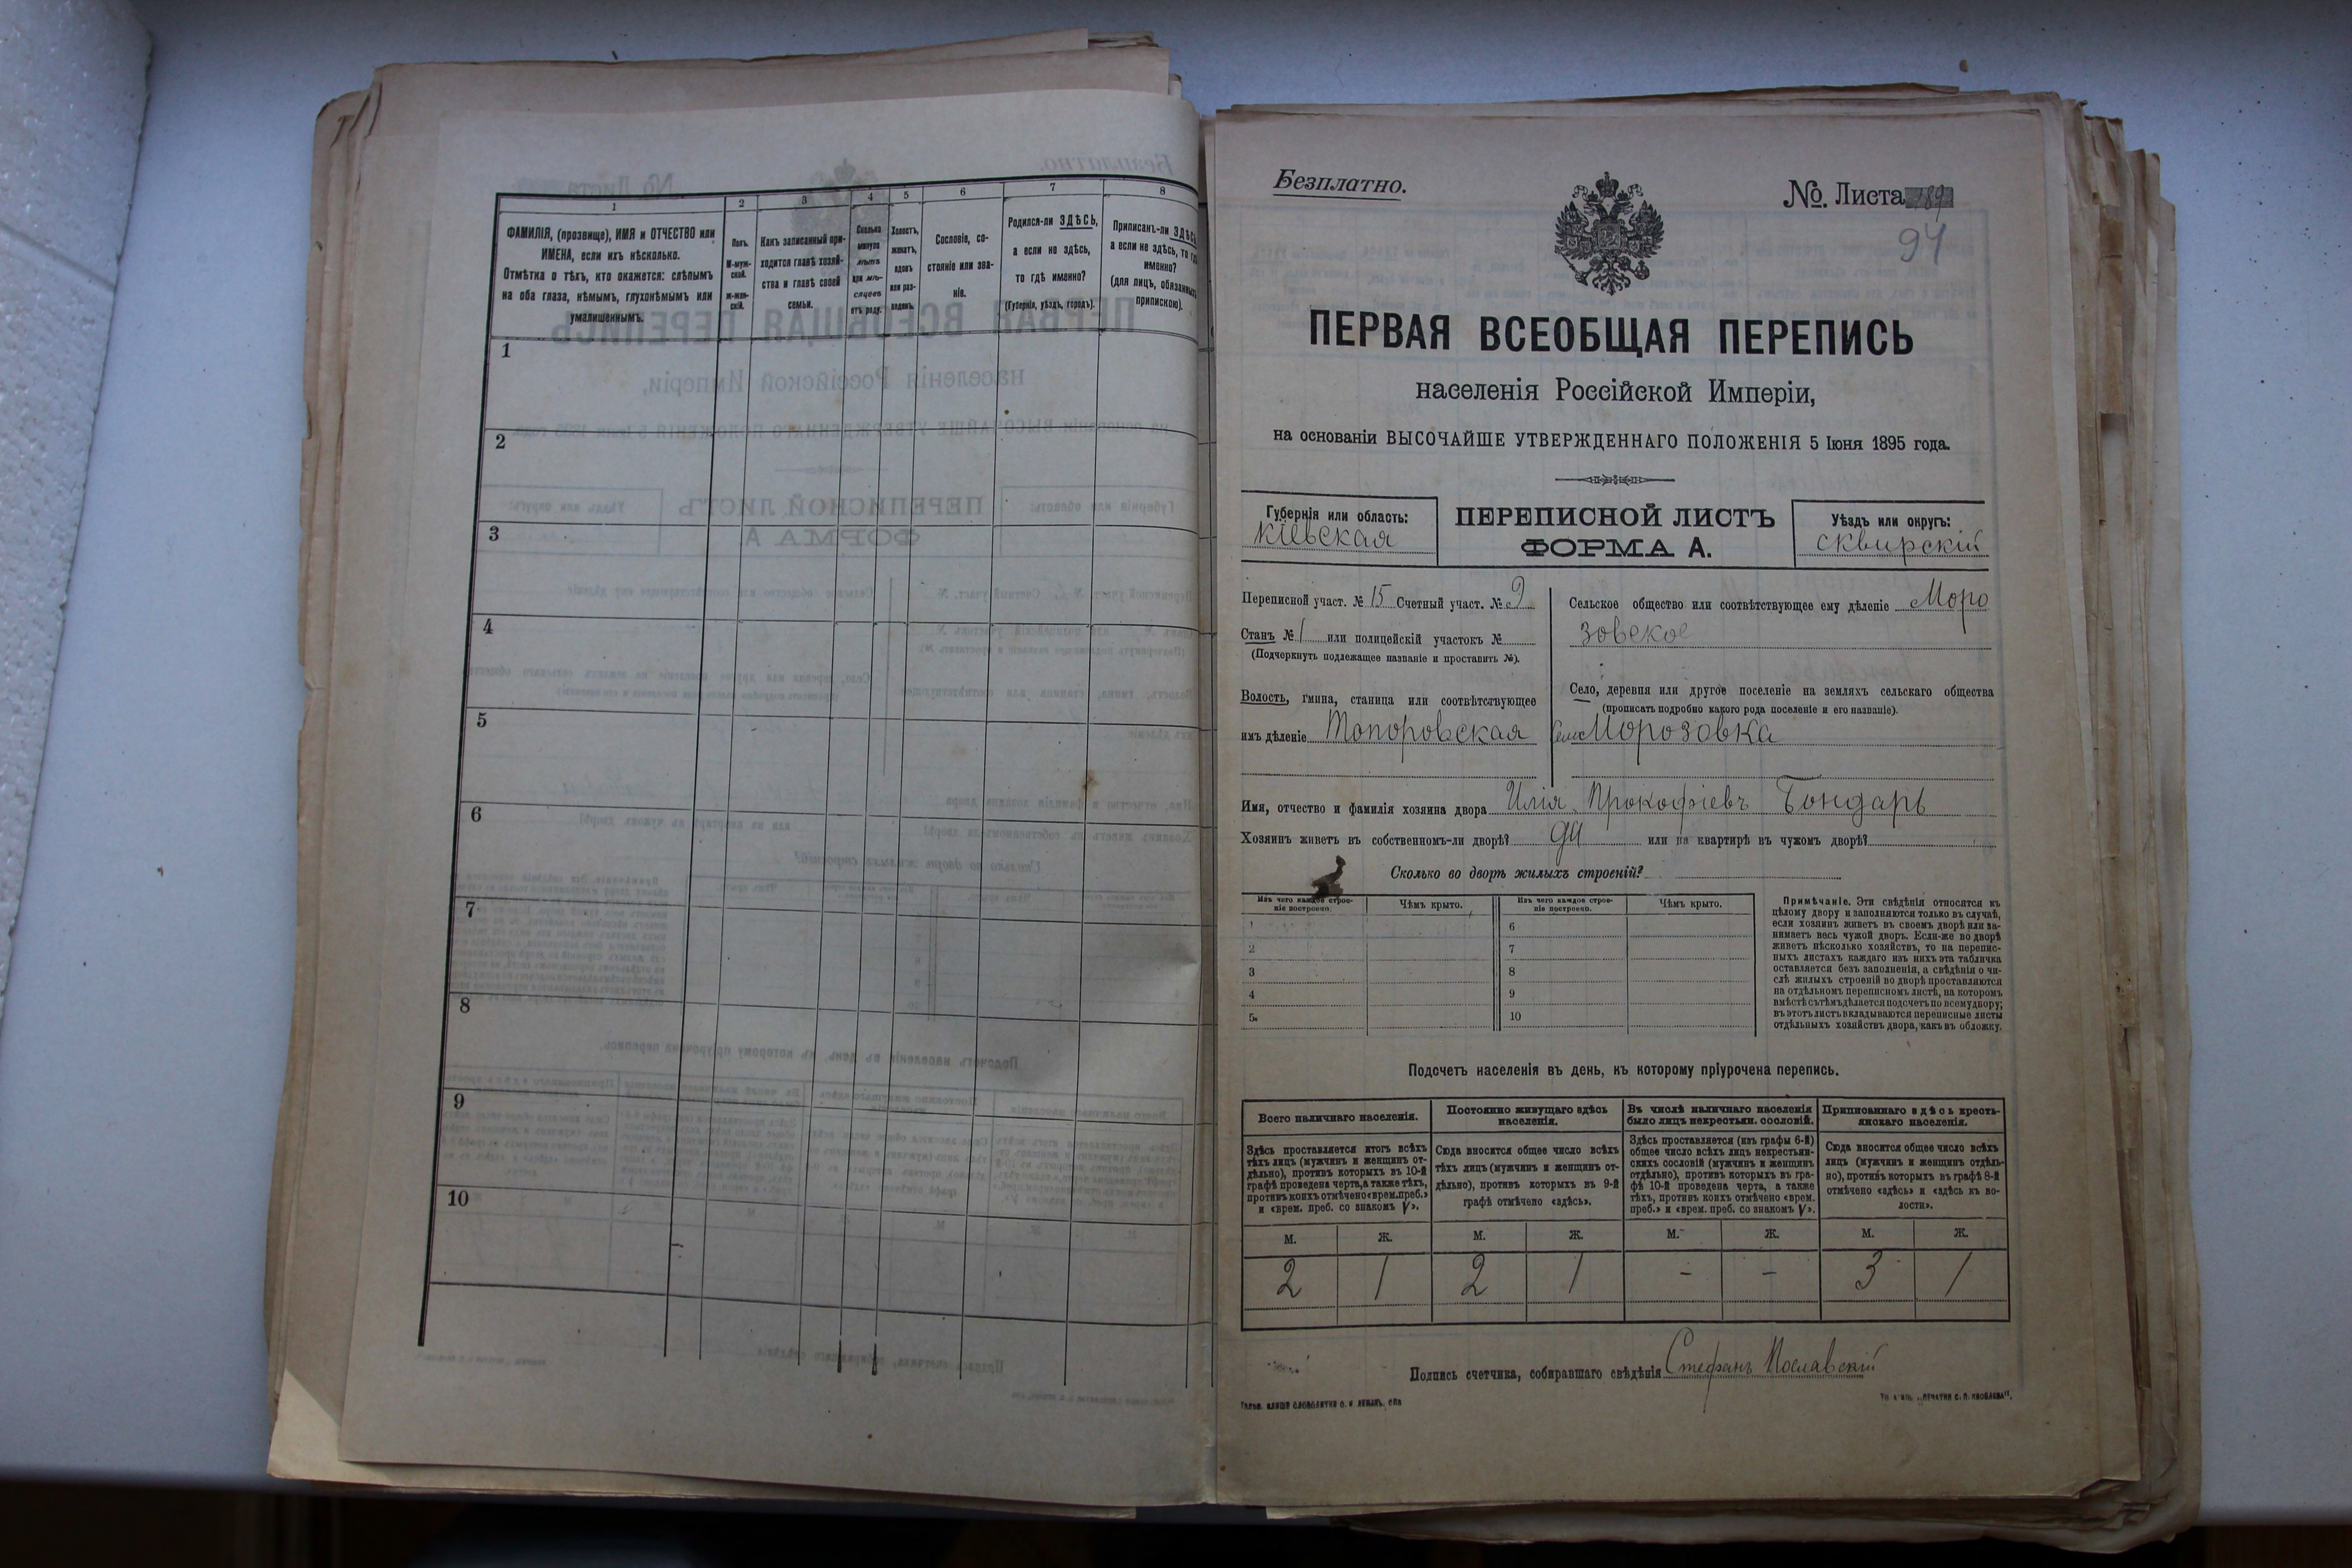 1
2
3
4
5
6
7
8
ФАМИЛІЯ, (прозвище), ИМЯ и ОТЧЕСТВО или
ИМЕНА, если ихъ нѣсколько.
Отмѣтка о тѣхъ, кто окажется: слѣпымъ
на оба глаза, нѣмымъ, глухонѣмымъ или
умалишеннымъ.
Полъ.
М-муж-
ской.
ж-жен-
скій.
Какъ записанный при-
ходится главѣ хозяй-
ства и главѣ своей
семьи.
Сколько
минуло
лѣтъ
или мѣ-
сяцевъ
отъ роду.
Холостъ,
женатъ,
вдовъ
или раз-
веденъ.
Сословіе, со-
стояніе или зва-
ніе.
Родился-ли ЗДѢСЬ,
а если не здѣсь,
то гдѣ именно?
(Губернія, уѣздъ, городъ).
Приписанъ-ли ЗДѢСЬ,
а если не здѣсь, то гдѣ
именно?
(для лицъ, обязанныхъ
припискою).
1
2
3
4
5
6
7
8
9
10
Безплатно.
№. Листа 189
94
ПЕРВАЯ ВСЕОБЩАЯ ПЕРЕПИСЬ
населенія Россійской Имперіи,
на основаніи ВЫСОЧАЙШЕ УТВЕРЖДЕННАГО ПОЛОЖЕНІЯ 5 Іюня 1895 года.
Губернія или область:
Кіевская
ПЕРЕПИСНОЙ ЛИСТЪ
ФОРМА А.
Уѣздъ или округъ:
сквирскій
Переписной участ. № 15 Счетный участ. № 9
Станъ № 1 или полицейскій участокъ №
(Подчеркнуть подлежащее названіе и проставить №).
Волость, гмина, станица или соотвѣтствующее
имъ дѣленіе Топоровская
Сельское общество или соотвѣтствующее ему дѣленіе Моро
зовское
Село, деревня или другое поселеніе на земляхъ сельскаго общества
(прописать подробно какого рода поселеніе и его названіе).
Село Морозовка
Имя, отчество и фамилія хозяина двора Илія Прокофіевъ Бондарь
Хозяинъ живетъ въ собственномъ-ли дворѣ? да или на квартирѣ въ чужомъ дворѣ?
Сколько во дворѣ жилыхъ строеній?
Изъ чего каждое строе-
ніе построено.
Чѣмъ крыто.
Изъ чего каждое строе-
ніе построено.
Чѣмъ крыто.
1
2
3
4
5
6
7
8
9
10
Примѣчаніе. Эти свѣдѣнія относятся къ
цѣлому двору и заполняются только въ случаѣ,
если хозяинъ живетъ въ своемъ дворѣ или за-
нимаетъ весь чужой дворъ. Если-же во дворѣ
живетъ нѣсколько хозяйствъ, то на перепис-
ныхъ листахъ каждаго изъ нихъ эта табличка
оставляется безъ заполненія, а свѣдѣнія о чи-
слѣ жилыхъ строеній во дворѣ проставляются
на отдѣльномъ переписномъ листѣ, на которомъ
вмѣстѣ съ тѣмъ дѣлается подсчетъ по всему двору;
въ этотъ листъ вкладываются переписные листы
отдѣльныхъ хозяйствъ двора, какъ въ обложку.
Подсчетъ населенія въ день, къ которому пріурочена перепись.
Всего наличнаго населенія.
Постоянно живущаго здѣсь
населенія.
Въ числѣ наличнаго населенія
было лицъ некрестьян. сословій.
Приписаннаго здѣсь кресть-
янскаго населенія.
Здѣсь проставляется итогъ всѣхъ
тѣхъ лицъ (мужчинъ и женщинъ от-
дѣльно), противъ которыхъ въ 10-й
графѣ проведена черта, а также тѣхъ,
противъ коихъ отмѣчено «врем. преб.»
и «врем. преб. со знакомъ V».
Сюда вносится общее число всѣхъ
тѣхъ лицъ (мужчинъ и женщинъ от-
дѣльно), противъ которыхъ въ 9-й
графѣ отмѣчено «здѣсь».
Здѣсь проставляется (изъ графы 6-й)
общее число всѣхъ лицъ некрестьян-
скихъ сословій (мужчинъ и женщинъ
отдѣльно), противъ которыхъ въ гра-
фѣ 10-й проведена черта, а также
тѣхъ, противъ коихъ отмѣчено «врем.
преб.» и «врем. преб. со знакомъ V».
Сюда вносится общее число всѣхъ
лицъ (мужчинъ и женщинъ отдѣль-
но), противъ которыхъ въ графѣ 8-й
отмѣчено «здѣсь» и «здѣсь къ во-
лости».
М. Ж. М. Ж. М. Ж. М. Ж.
2 1 2 1 - - 3 1
Подпись счетчика, собиравшаго свѣдѣнія Стефанъ Пославскій